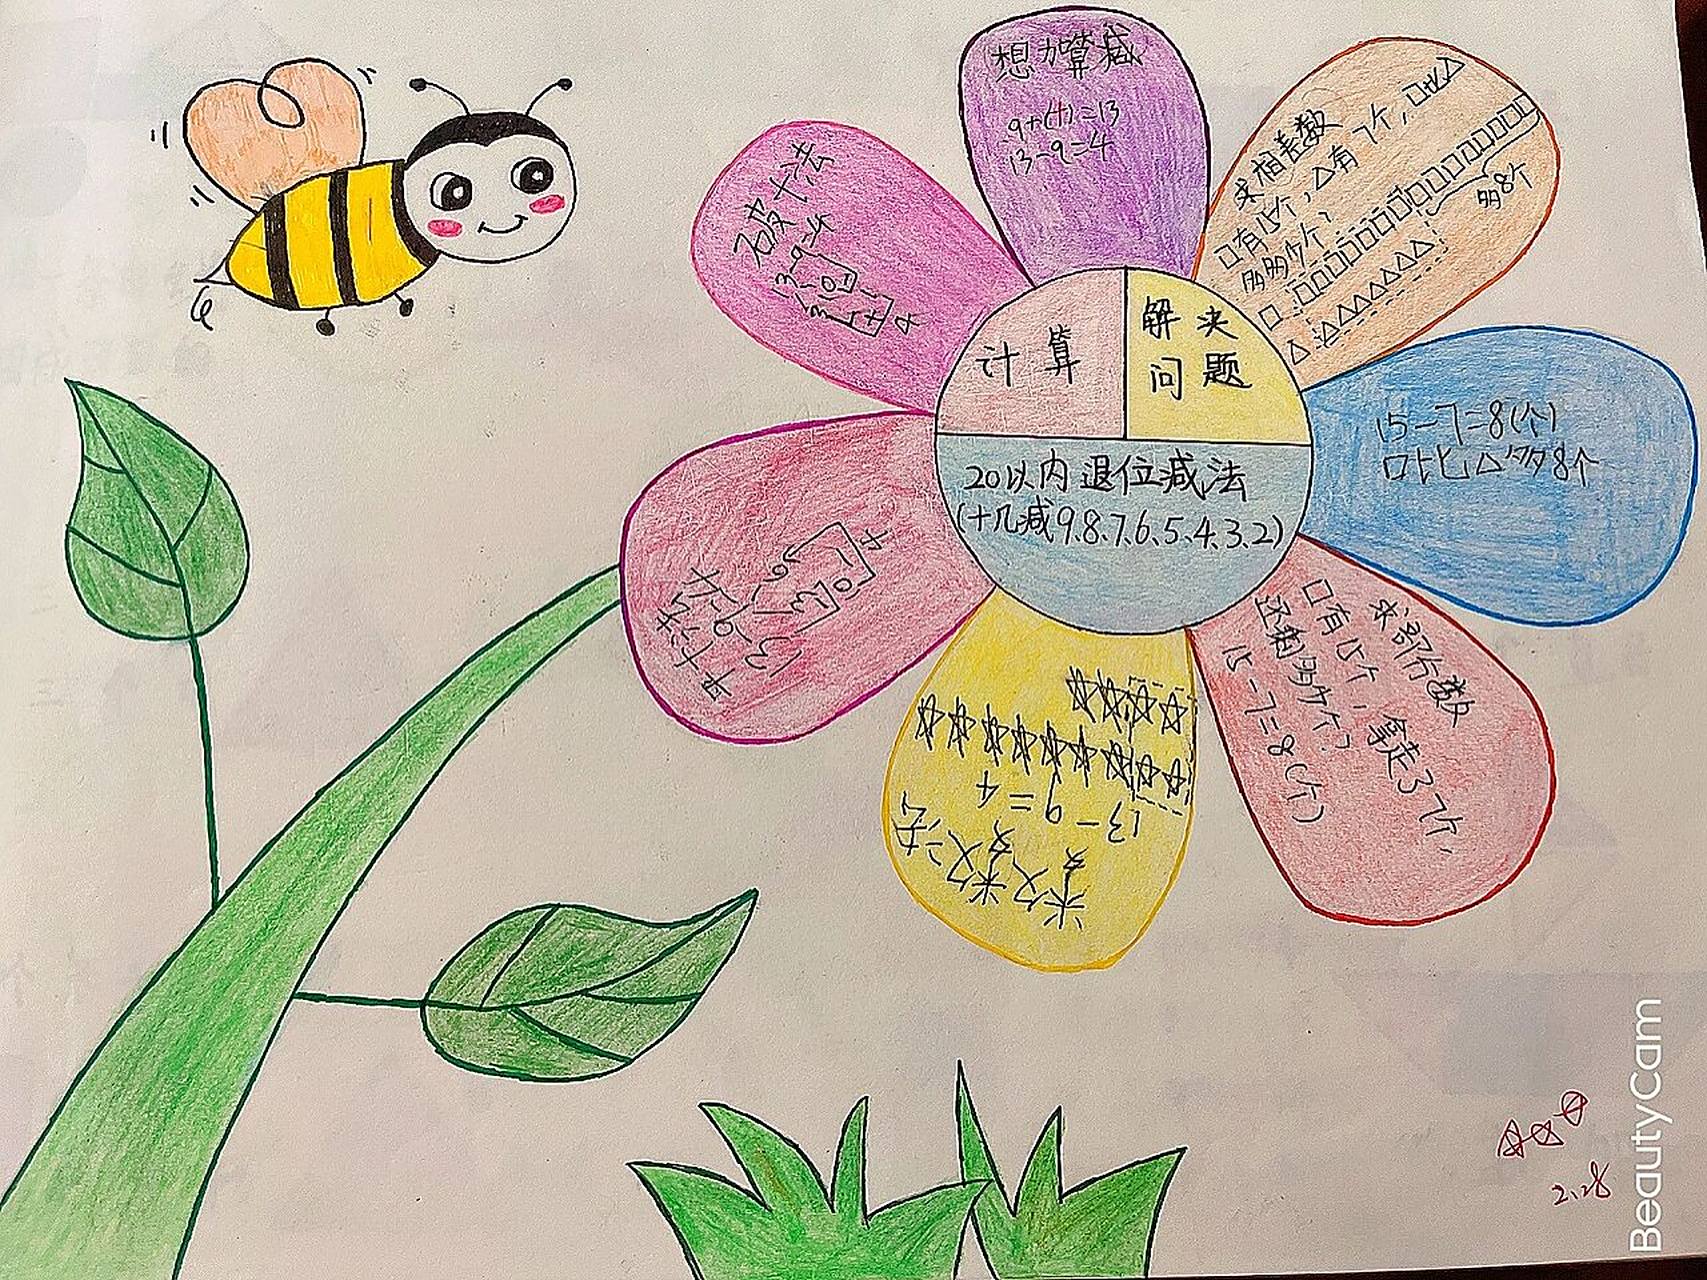 计算
解决
问题
20以内退位减法
(十几减9、8、7、6、5、4、3、2)
想加算减
9+(4)=13
13-9=4
破十法
13-9=4
3 10
1
4
平十法
13-9=4
3 6
10
数一数
13-9=4
求相差数
□有15个,△有7个,□比△
多多少个?
□
△
多8个
15-7=8(个)
□比△多8个
求部分数
□有15个,拿走了7个,
还剩多少个?
15-7=8(个)
2.28
BeautyCam